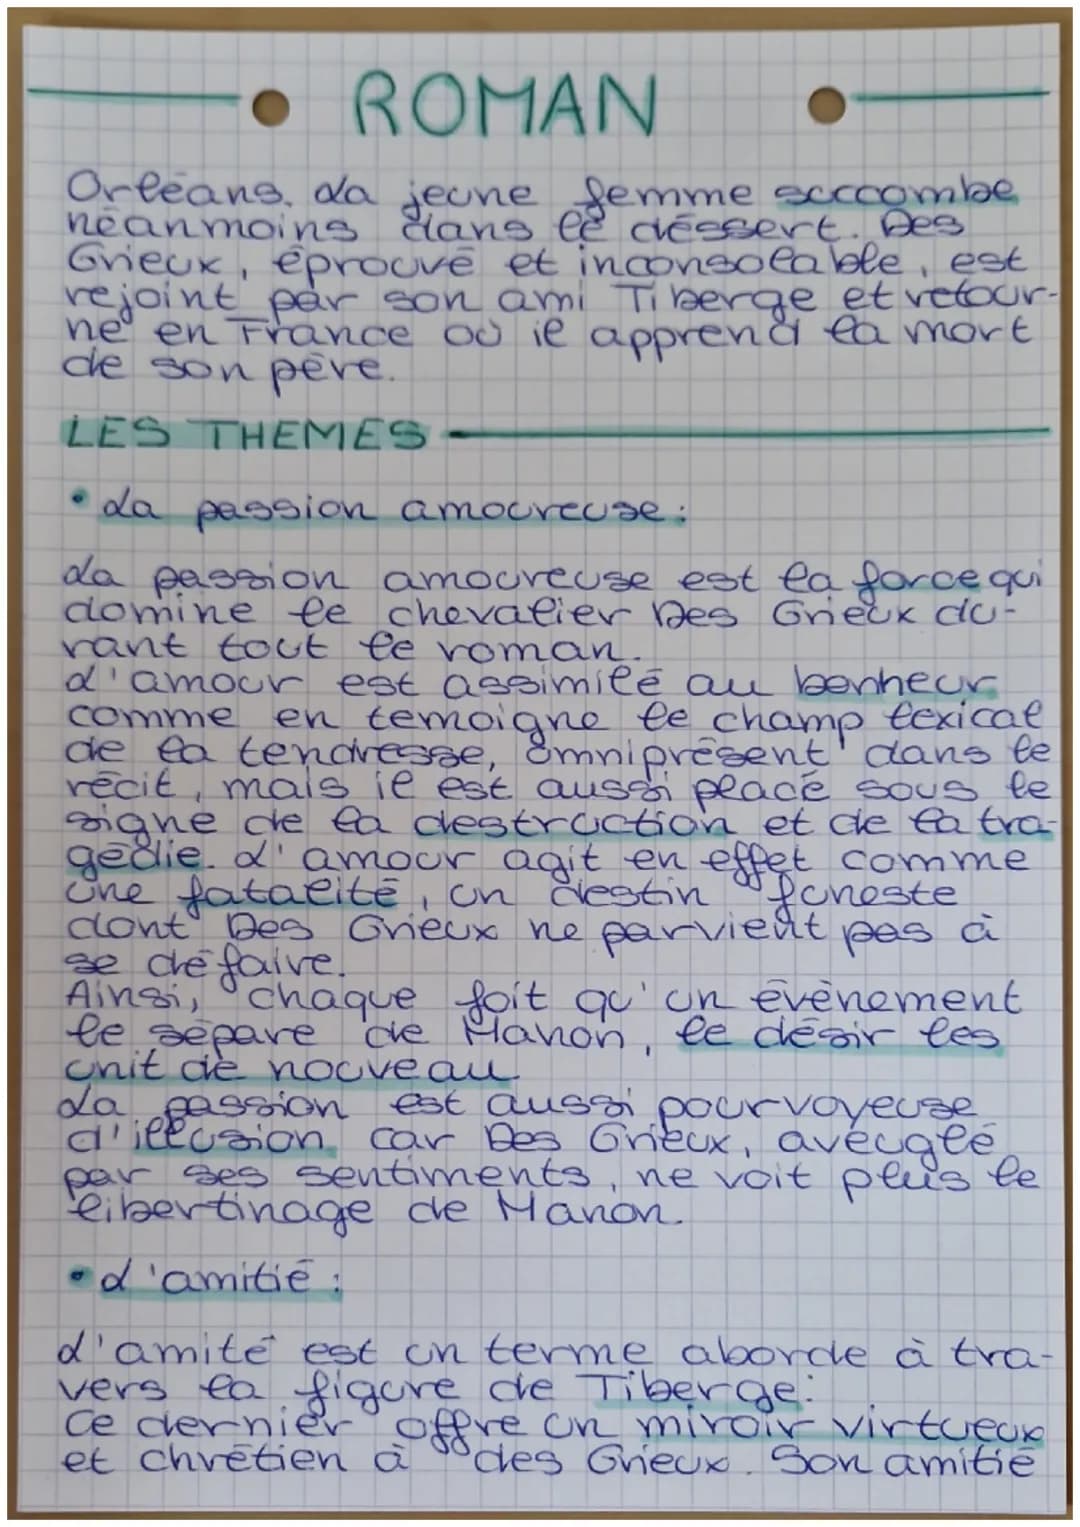 ROMAN
Orléans. La jeune femme succombe
néanmoins dans le déssert. Des
Grieux, éprouvé et inconsolable, est
rejoint par son ami Tiberge et retour-
ne en France où il apprend la mort
de son père.
LES THEMES
• La passion amoureuse :
La passion amoureuse est la force qui
domine le chevalier Des Grieux du-
rant tout le roman.
L'amour est assimilé au bonheur
comme en temoigne le champ lexical
de la tendresse, omniprésent dans le
récit, mais il est aussi placé sous le
signe de la destruction et de la tra-
gédie. L'amour agit en effet comme
une fatalité, un destin funeste
dont Des Grieux ne parvient pas à
se défaire.
Ainsi, chaque foit qu'un évènement
le sépare de Manon, le désir les
unit de nouveau.
La passion est aussi pourvoyeuse
d'illusion car Des Grieux, aveuglé
par ses sentiments, ne voit plus le
libertinage de Manon.
• L'amitié :
L'amité est un terme aborde à tra-
vers la figure de Tiberge:
Ce dernier offre un miroir virtueux
et chrétien à des Grieux. Son amitié